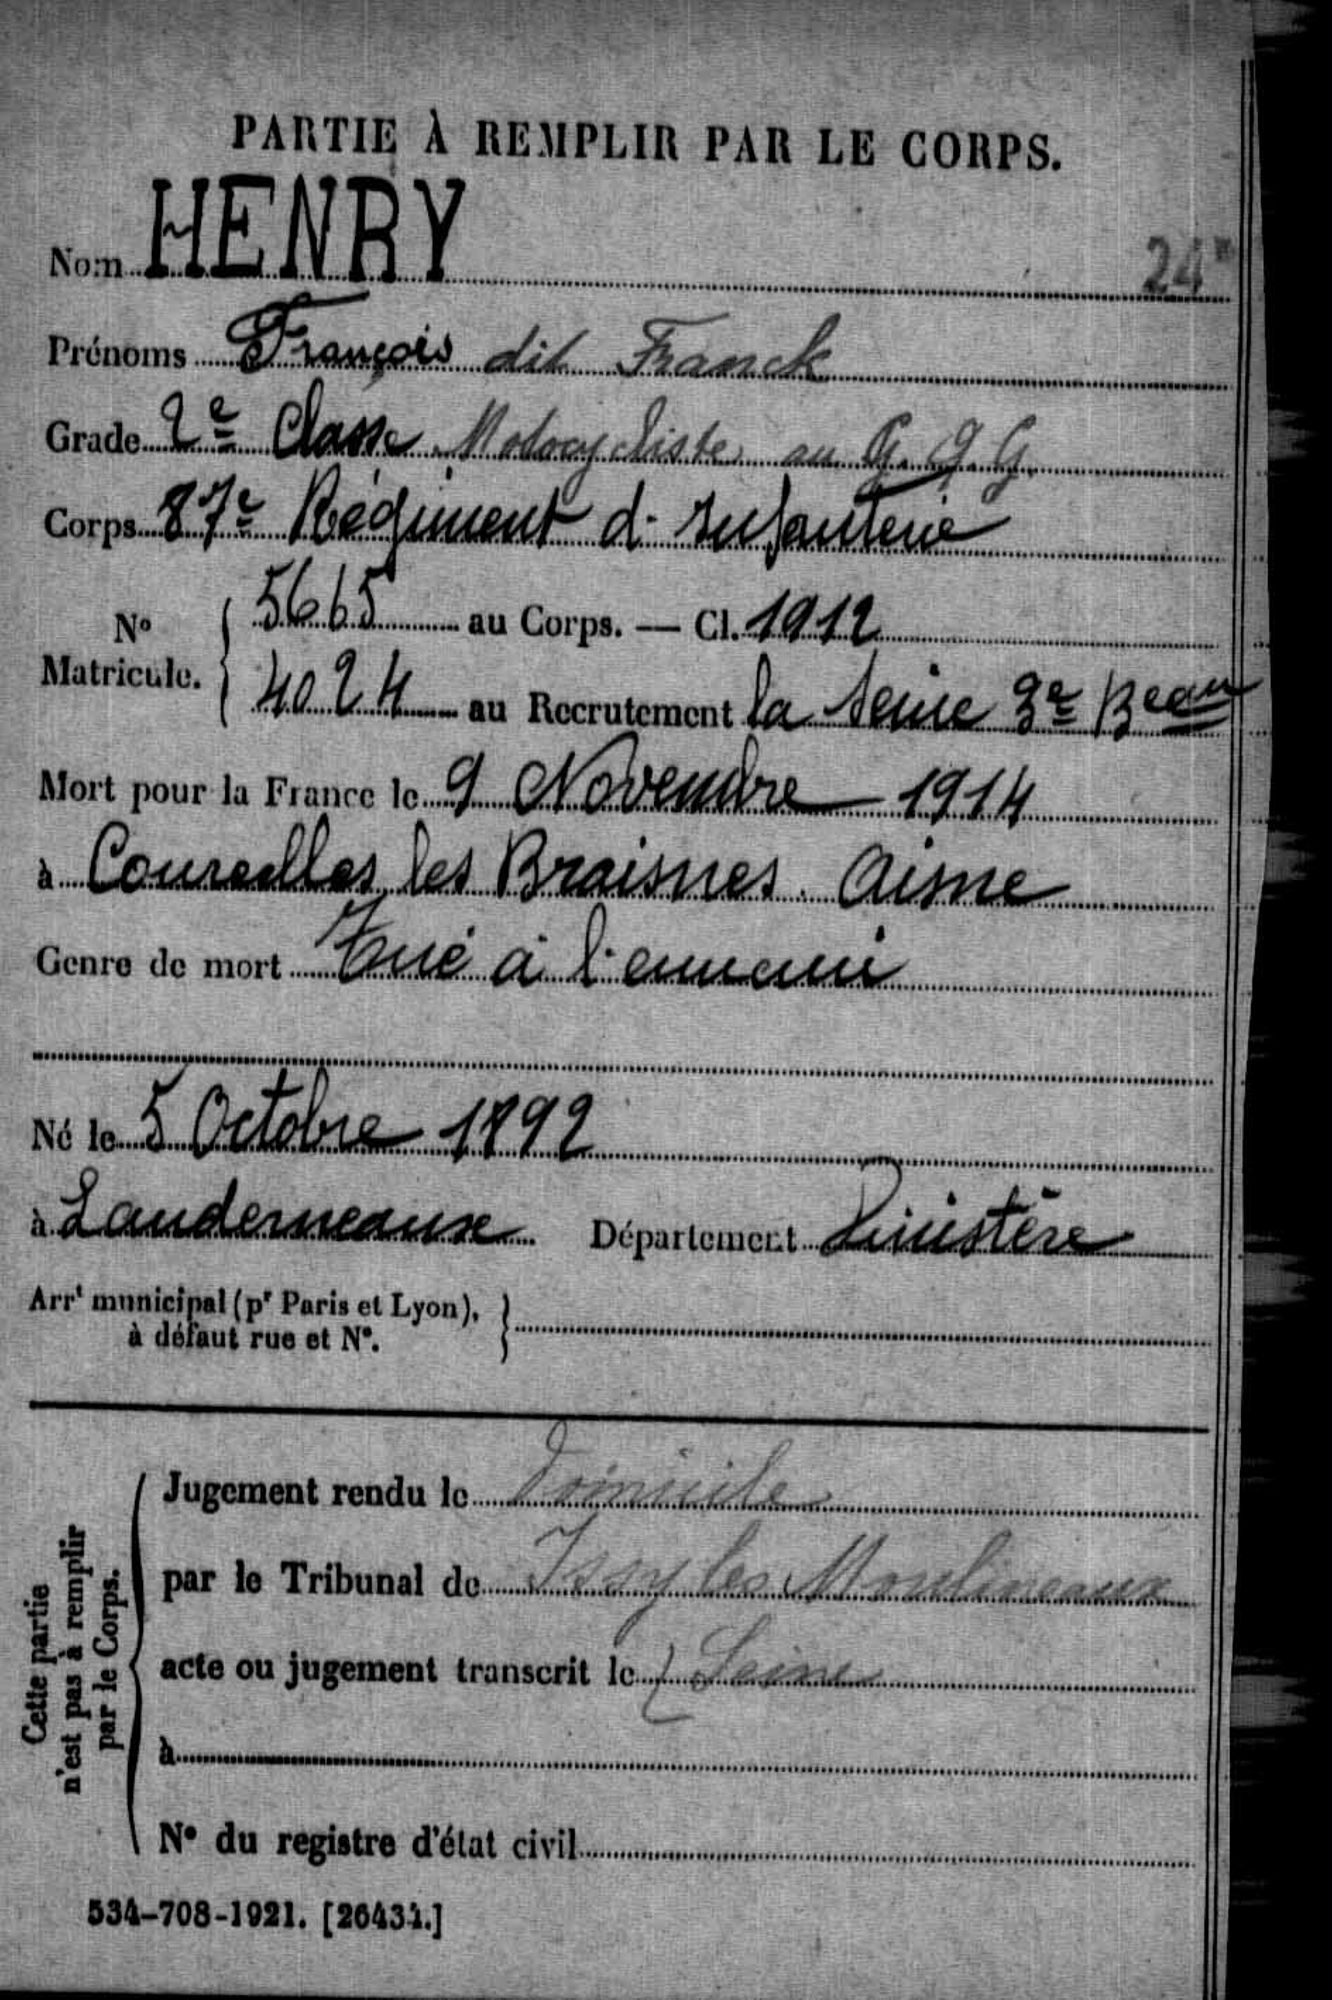 PARTIE À REMPLIR PAR LE CORPS.
Nom HENRY
24
Prénoms François dit Franck
Grade 2e Classe Motocycliste au G. Q. G.
Corps 87e Régiment d'Infanterie
No Matricule. 5665 au Corps. — Cl. 1912
4024 au Recrutement la Seine 3e Beau
Mort pour la France le 9 Novembre 1914
à Courcelles les Braisnes Aisne
Genre de mort Tué à l'ennemi
Né le 5 Octobre 1892
à Landerneaux Département Finistère
Arrt municipal (pr Paris et Lyon), à défaut rue et No.
Cette partie n'est pas à remplir par le Corps.
Jugement rendu le Domicile
par le Tribunal de Issy les Moulineaux
acte ou jugement transcrit le Seine
à
No du registre d'état civil
534-708-1921. [26434.]